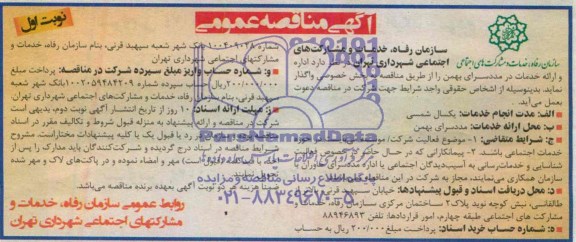 آگهی مناقصه عمومی
نوبت اول
سازمان رفاه، خدمات و مشارکت‌های اجتماعی
سازمان رفاه، خدمات و مشارکت‌های
اجتماعی شهرداری تهران
دارد اداره
و ارائه خدمات در مددسرای بهمن را از طریق مناقصه به بخش خصوصی واگذار
نماید، بدینوسیله از اشخاص حقوقی واجد شرایط جهت شرکت در مناقصه دعوت
بعمل می‌آید.
الف: مدت انجام خدمات: یکسال شمسی
ب: محل ارائه خدمات: مددسرای بهمن
ج: شرایط متقاضی: ۱- موضوع فعالیت شرکت/
خدمات اجتماعی باشند. ۲- پیمانکارانی که در حال حاضر
شناسایی و خدمات‌رسانی به آسیب‌دیدگان اجتماعی یا اداره مددسرای خاوران با
سازمان همکاری می‌نمایند، مجاز به شرکت در این مناقصه
د: محل دریافت اسناد و قبول پیشنهادها: خیابان
طالقانی، نبش کوچه نوید پلاک ۲ ساختمان مرکزی سازمان رفاه، خدمات و
مشارکت های اجتماعی طبقه چهارم، امور قراردادها: تلفن ۸۸۹۴۶۸۹۳
ه: شماره حساب خرید اسناد: مبلغ ۲۰۰/۰۰۰ ریال به حساب
شماره بانک شهر شعبه سپهبد قرنی، بنام سازمان رفاه، خدمات و
مشارکتهای اجتماعی شهرداری تهران
و: شماره حساب واریز مبلغ سپرده شرکت در مناقصه: پرداخت مبلغ
ریال به حساب سپرده شماره بانک شهر شعبه
سپهبد قرنی، بنام سازمان رفاه، خدمات و مشارکتهای اجتماعی شهرداری تهران
ز: مهلت ارائه اسناد: ۱۰ روز از تاریخ انتشار آگهی نوبت دوم، بدیهی است
شرکت در مناقصه و ارائه پیشنهاد به منزله قبول شروط و تکالیف مقرر در اسناد
رد یا قبول یک یا کلیه پیشنهادات مختاراست. مشروح
شرایط مناقصه در اسناد درج گردیده و شرکت‌کنندگان باید مدارک را پس از
مهر و امضاء نموده و در پاکت‌های لاک و مهر شده
ضمنا هزینه هر دو نوبت آگهی بعهده برنده مناقصه می‌باشد.
روابط عمومی سازمان رفاه، خدمات و
مشارکتهای اجتماعی شهرداری تهران
ParsNamadData
پایگاه اطلاع رسانی مناقصه و مزایده
۰۲۱-۸۸۳۴۹۶۷۰-۵